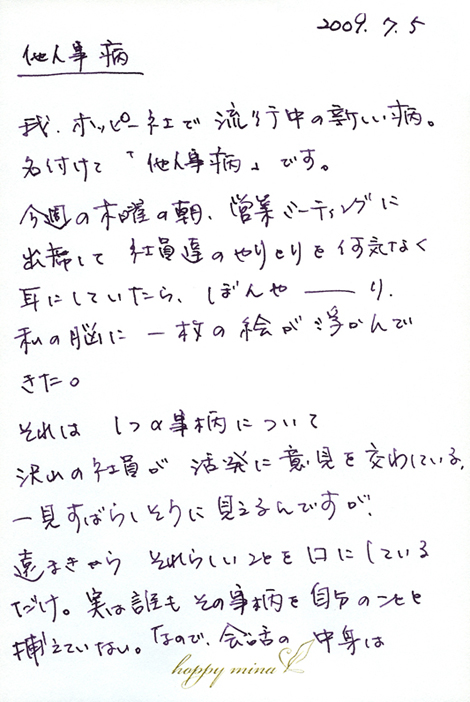 2009.7.5
他人事病
我、ホッピー社で流行中の新しい病。
名付けて「他人事病」です。
今週の木曜の朝、営業ミーティングに
出席して社員達のやりとりを何気なく
耳にしていたら、ぼんや――り、
私の脳に一枚の絵が浮かんで
きた。
それは1つの事柄について
沢山の社員が活発に意見を交わしている、
一見すばらしそうに見えるんですが、
遠まきからそれらしいことを口にしている
だけ。実は誰もその事柄を自分のことと
捕えていない。なので、会話の中身は
happy mina